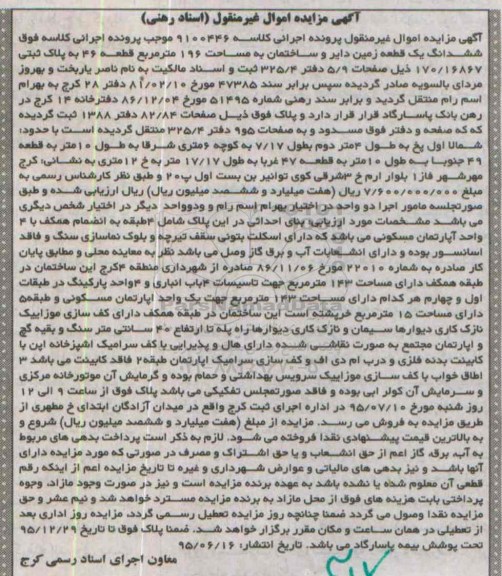 آگهی مزایده اموال غیرمنقول (اسناد رهنی)
آگهی مزایده اموال غیرمنقول پرونده اجرائی کلاسه ۹۱۰۰۴۴۶ موجب پرونده اجرائی کلاسه فوق
ششدانگ یک قطعه زمین دایر و ساختمان به مساحت ۱۹۶ مترمربع قطعه ۴۶ به پلاک ثبتی
۱۷۰/۱۶۸۶۷ ذیل صفحات ۵/۹ دفتر ۳۲۵/۴ ثبت و اسناد مالکیت به نام ناصر یاربخت و بهروز
مردای بالسویه صادر گردیده سپس برابر سند ۴۷۳۸۵ مورخ ۸۱/۰۲/۱۰ دفتر ۲۸ کرج به بهرام
اسم رام منتقل گردید و برابر سند رهنی شماره ۵۱۴۹۵ مورخ ۸۶/۱۲/۰۴ دفترخانه ۱۴ کرج در
رهن بانک پاسارگاد قرار دارد و پلاک فوق ذیل صفحات ۸۲/۸۴ دفتر ۱۳۸۸ ثبت گردیده
که که صفحه و دفتر فوق مسدود و به صفحات ۹۵و دفتر ۳۲۵/۴ منتقل گردیده است با حدود:
شمالا اول پخ به طول ۴متر دوم بطول ۷/۱۷ به کوچه ۶متری شرقا به طول ۱۰متر به قطعه
۴۹ جنوبا به طول ۱۰متر به قطعه ۴۷ غربا به طول ۱۷/۱۷ متر به خ ۱۲متری به نشانی: کرج
مهرشهر فاز۱ بلوار ارم خ ۳شرقی کوی توانیر بن بست اول پ۲۰ و طبق نظر کارشناس رسمی به
مبلغ ۷/۶۰۰/۰۰۰/۰۰۰ ریال (هفت میلیارد و ششصد میلیون ریال) ریال ارزیابی شده و طبق
صورتجلسه مامور اجرا دو واحد در اختیار بهرام اسم رام و ودوواحد دیگر در اختیار شخص دیگری
می باشد مشخصات مورد ارزیابی بنای احداثی در این پلاک شامل ۴طبقه به انضمام همکف با ۴
واحد آپارتمان مسکونی می باشد که دارای اسکلت بتونی سقف تیرچه و بلوک نماسازی سنگ و فاقد
اسانسور بوده و دارای انشعابات آب و برق گاز وصل می باشد نظر به معاینه محلی و مطابق پایان
کار صادره به شماره ۲۲۰۱۰ مورخ ۸۶/۱۱/۰۶ صادره از شهرداری منطقه ۴کرج این ساختمان در
طبقه همکف دارای مساحت ۱۴۳ مترمربع جهت تاسیسات ۴باب انباری و ۴واحد پارکینگ در طبقات
اول و چهارم هر کدام دارای مساحت ۱۴۳ مترمربع جهت یک واحد آپارتمان مسکونی و طبقه۵
دارای مساحت ۱۵ مترمربع خرپشته است این ساختمان در طبقه همکف دارای کف سازی موزاییک
نازک کاری دیوارها سیمان و نازک کاری دیوارها راه پله تا ارتفاع ۴۰ سانتی متر سنگ و بقیه گچ
و اپارتمان مجتمع به صورت نقاشی شده دارای هال و پذیرایی با کف سرامیک اشپزخانه اپن با
کابینت بدنه فلزی و درب ام دی اف و کف سازی سرامیک اپارتمان طبقه۲ فاقد کابینت می باشد ۳
اطاق خواب با کف سازی موزاییک سرویس بهداشتی و حمام بوده و گرمایش آن موتورخانه مرکزی
و سرمایش آن کولر ابی بوده و فاقد صورتمجلس تفکیکی می باشد پلاک فوق از ساعت ۹ الی ۱۲
روز شنبه مورخ ۹۵/۰۷/۱۰ در اداره اجرای ثبت کرج واقع در میدان آزادگان ابتدای خ مطهری از
طریق مزایده به فروش می رسد. مزایده از مبلغ (هفت میلیارد و ششصد میلیون ریال) شروع و
به بالاترین قیمت پیشنهادی نقدا فروخته می شود. لازم به ذکر است پرداخت بدهی های مربوط
به آب، برق، گاز اعم از حق انشعاب و یا حق اشتراک و مصرف در صورتی که مورد مزایده دارای
آنها باشد و نیز بدهی های مالیاتی و عوارض شهرداری و غیره تا تاریخ مزایده اعم از اینکه رقم
قطعی آن معلوم شده یا نشده باشد به عهده برنده مزایده است و نیز در صورت وجود مازاد، وجوه
پرداختی بابت هزینه های فوق از محل مازاد به برنده مزایده مسترد خواهد شد و نیم عشر و حق
مزایده نقدا وصول می گردد ضمنا چنانچه روز مزایده تعطیل رسمی گردد، مزایده روز اداری بعد
از تعطیلی در همان ساعت و مکان مقرر برگزار خواهد شد. ضمنا پلاک فوق تا تاریخ ۹۵/۱۲/۲۹
تحت پوشش بیمه پاسارگاد می باشد. تاریخ انتشار: ۹۵/۰۶/۱۶
معاون اجرای اسناد رسمی کرج